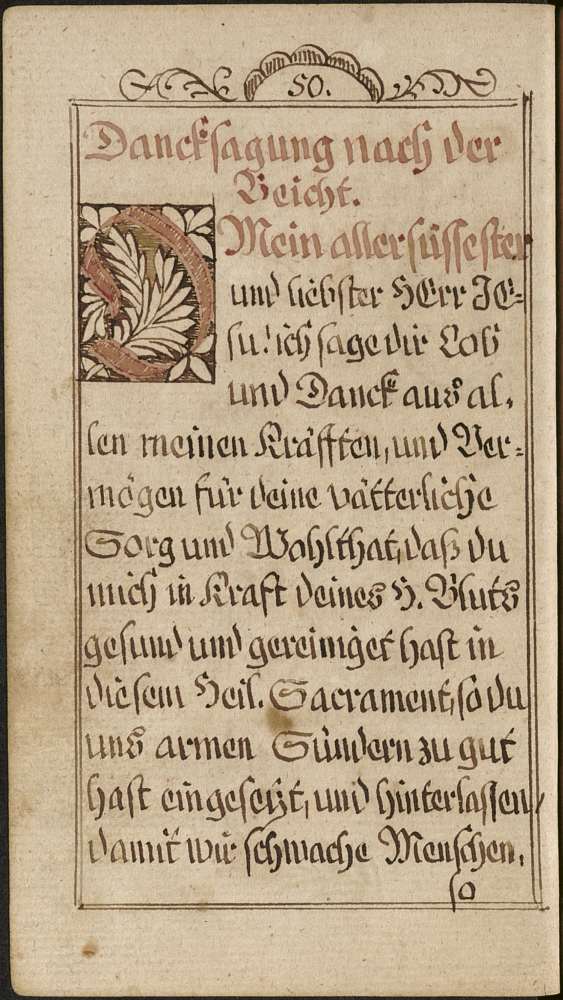 50.
Dancksagung nach der
Beicht.
O Mein allersüssester
und liebster HErr JE-
su! ich sage dir Lob
und Danck aus al-
len meinen Kräfften, und Ver-
mögen für deine vätterliche
Sorg und Wohlthat, daß du
mich in Kraft deines H. Bluts
gesund und gereiniget hast in
diesem Heil. Sacrament, so du
uns armen Sündern zu gut
hast eingesetzt, und hinterlassen,
damit wir schwache Menschen,
so